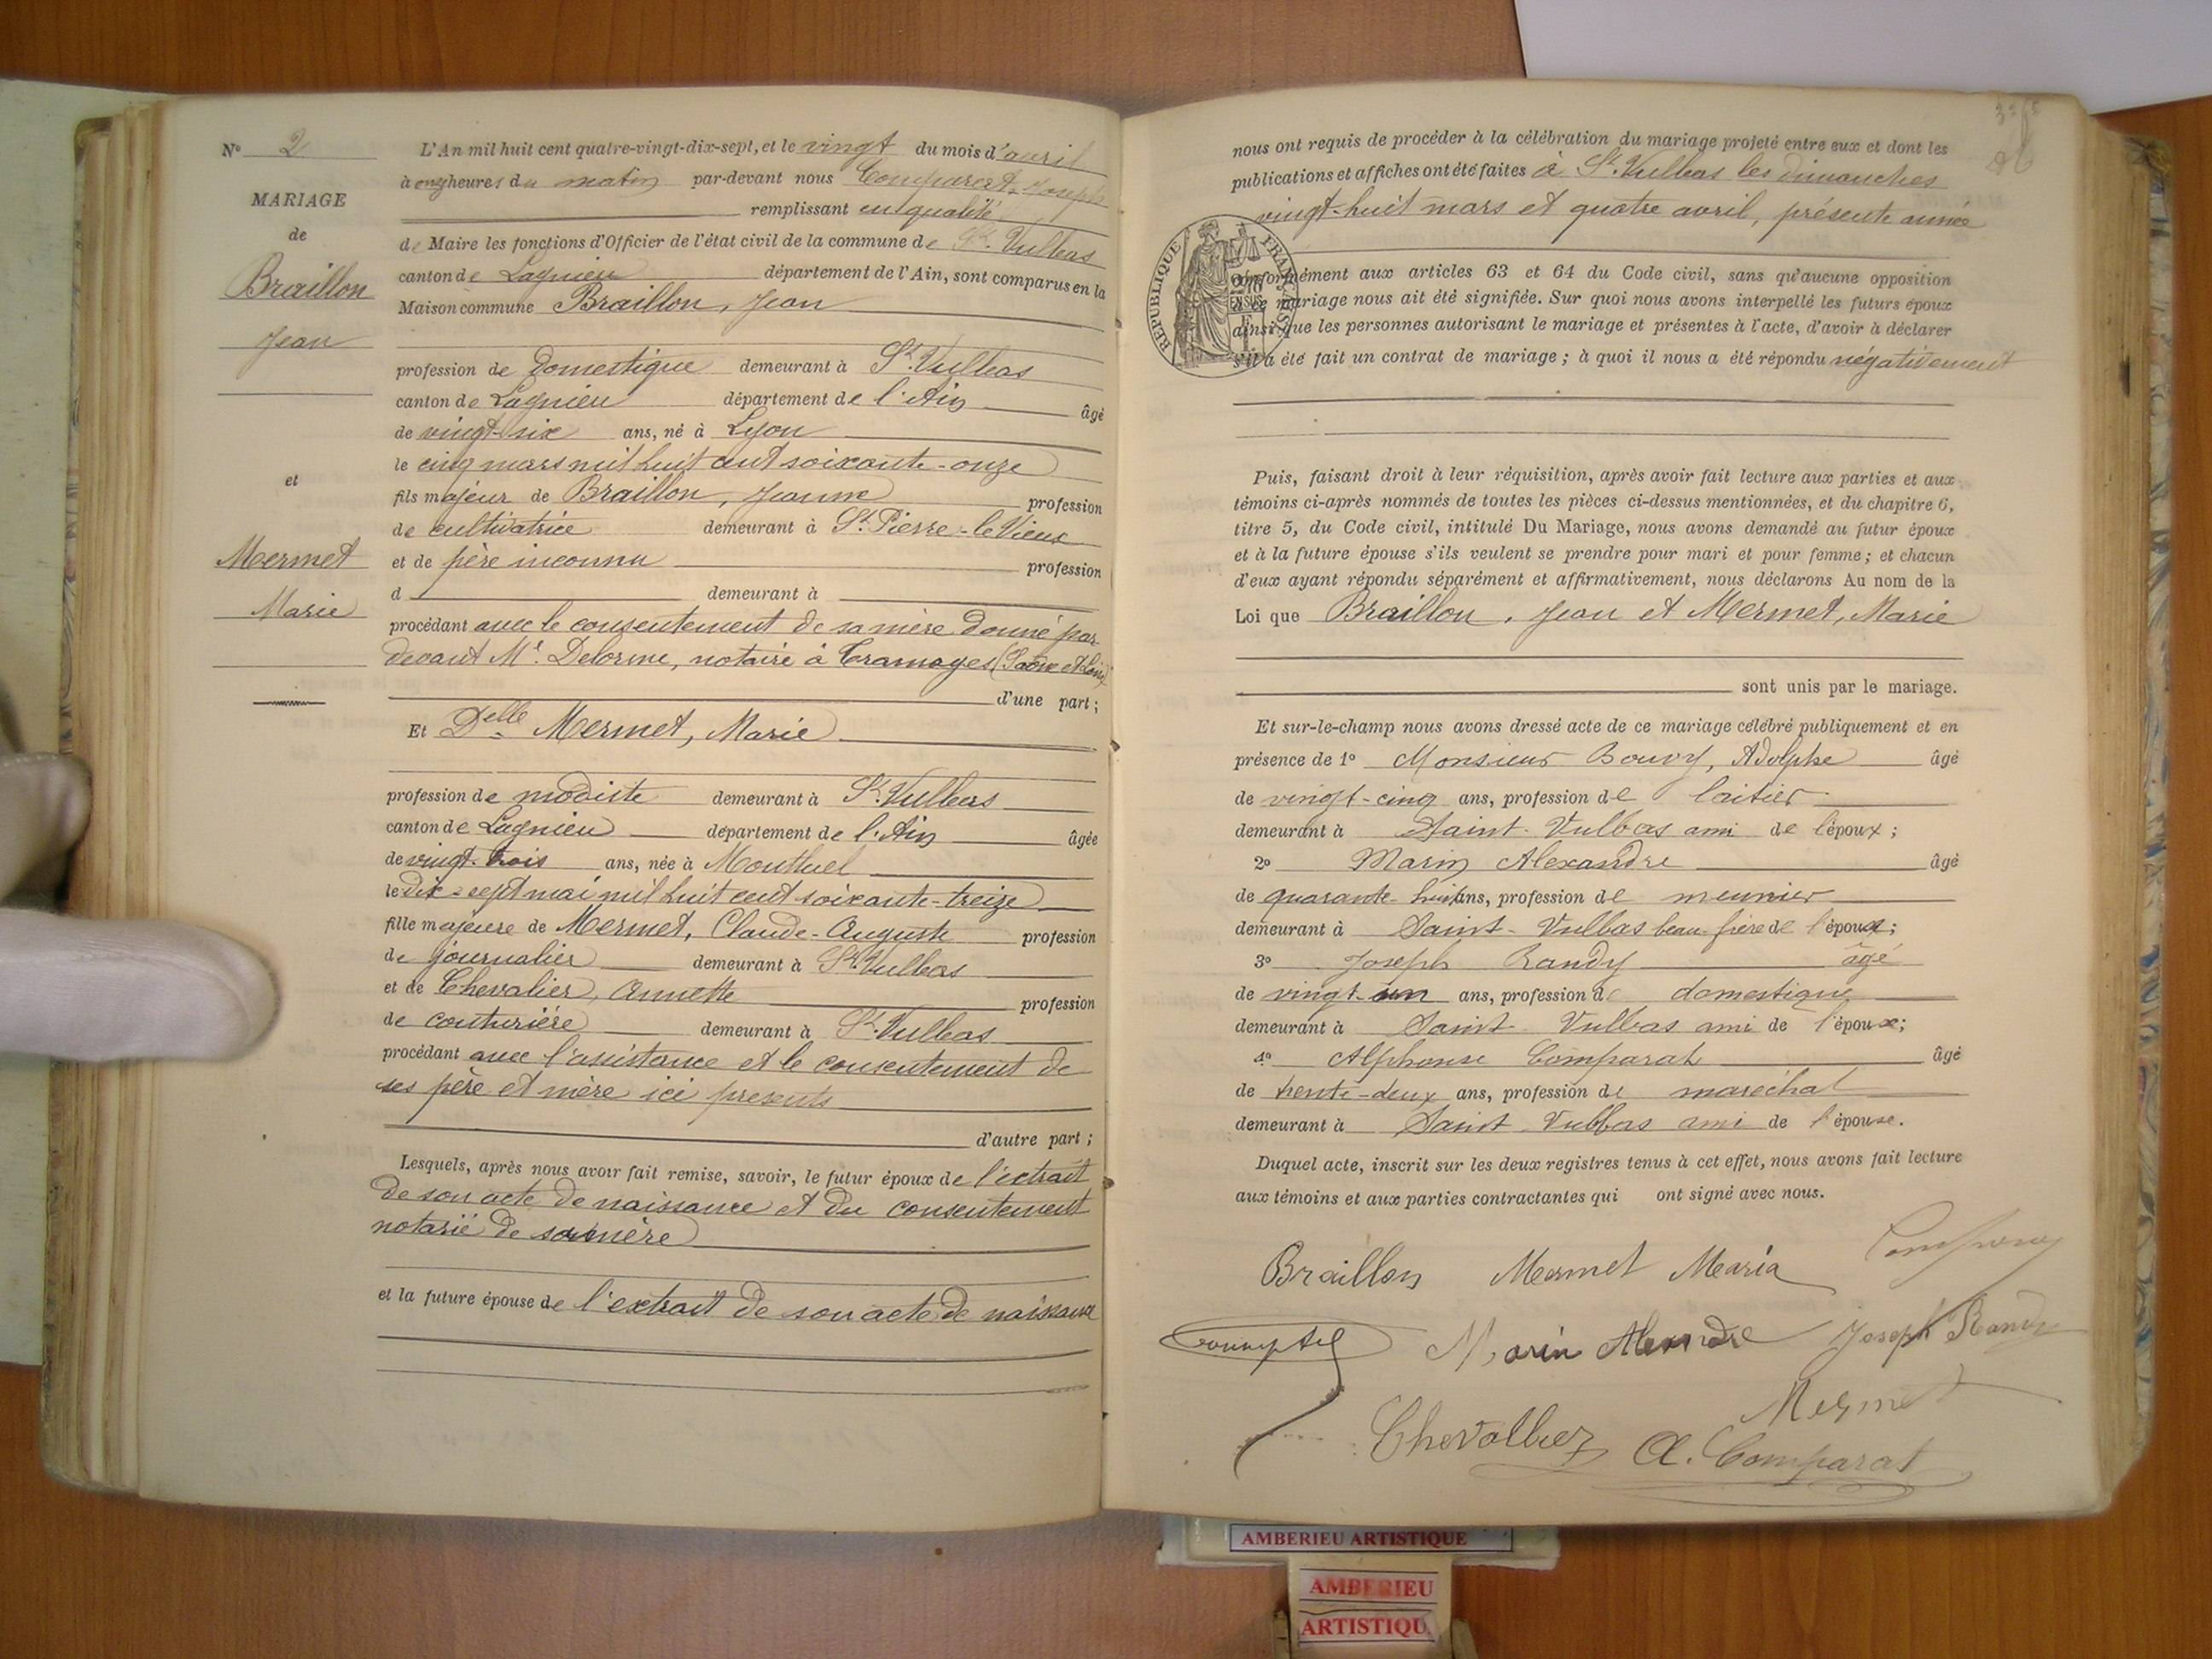 N° 2
MARIAGE
de
Braillon
Jean
et
Mermet
Marie
L'An mil huit cent quatre-vingt-dix-sept, et le vingt du mois d'avril
à onze heures du matin par-devant nous Comparat, Joseph
remplissant en qualité
de Maire les fonctions d'Officier de l'état civil de la commune de St. Vulbas
canton de Lagnieu département de l'Ain, sont comparus en la
Maison commune Braillon, Jean
profession de domestique demeurant à St. Vulbas
canton de Lagnieu département de l'Ain âgé
de vingt-six ans, né à Lyon
le cinq mars mil huit cent soixante-onze
fils majeur de Braillon, Jeanne profession
de cultivatrice demeurant à St. Pierre-le Vieux
et de père inconnu profession
d demeurant à
procédant avec le consentement de sa mère donné par
devant Me. Delorme, notaire à Tramayes (Saône et Loire)
d'une part;
Et Delle Mermet, Marie
profession de modiste demeurant à St. Vulbas
canton de Lagnieu département de l'Ain âgée
de vingt-trois ans, née à Montluel
le dix-sept mai mil huit cent soixante-treize
fille majeure de Mermet, Claude-Auguste profession
de journalier demeurant à St. Vulbas
et de Chevalier, Annette profession
de couturière demeurant à St. Vulbas
procédant avec l'assistance et le consentement de
ses père et mère ici présents
d'autre part;
Lesquels, après nous avoir fait remise, savoir, le futur époux de l'extrait
de son acte de naissance et du consentement
notarié de sa mère
et la future épouse de l'extrait de son acte de naissance
nous ont requis de procéder à la célébration du mariage projeté entre eux et dont les
publications et affiches ont été faites à St. Vulbas les dimanches
vingt-huit mars et quatre avril, présente année
RÉPUBLIQUE FRANÇAISE
conformément aux articles 63 et 64 du Code civil, sans qu'aucune opposition
à ce mariage nous ait été signifiée. Sur quoi nous avons interpellé les futurs époux
ainsi que les personnes autorisant le mariage et présentes à l'acte, d'avoir à déclarer
s'il a été fait un contrat de mariage; à quoi il nous a été répondu négativement
Puis, faisant droit à leur réquisition, après avoir fait lecture aux parties et aux
témoins ci-après nommés de toutes les pièces ci-dessus mentionnées, et du chapitre 6,
titre 5, du Code civil, intitulé Du Mariage, nous avons demandé au futur époux
et à la future épouse s'ils veulent se prendre pour mari et pour femme; et chacun
d'eux ayant répondu séparément et affirmativement, nous déclarons Au nom de la
Loi que Braillon, Jean et Mermet, Marie
sont unis par le mariage.
Et sur-le-champ nous avons dressé acte de ce mariage célébré publiquement et en
présence de 1° Monsieur Bouvy, Adolphe âgé
de vingt-cinq ans, profession de laitier
demeurant à Saint-Vulbas ami de l'époux;
2° Marin Alexandre âgé
de quarante-huit ans, profession de meunier
demeurant à Saint-Vulbas beau-frère de l'époux;
3° Joseph Randy âgé
de vingt-un ans, profession de domestique
demeurant à Saint Vulbas ami de l'époux;
4° Alphonse Comparat âgé
de trente-deux ans, profession de maréchal
demeurant à Saint Vulbas ami de l'épouse.
Duquel acte, inscrit sur les deux registres tenus à cet effet, nous avons fait lecture
aux témoins et aux parties contractantes qui ont signé avec nous.
Braillon Mermet Maria
Marin Alexandre Joseph Randy
Mermet
Chevallier A. Comparat
AMBERIEU ARTISTIQUE
AMBERIEU
ARTISTIQU